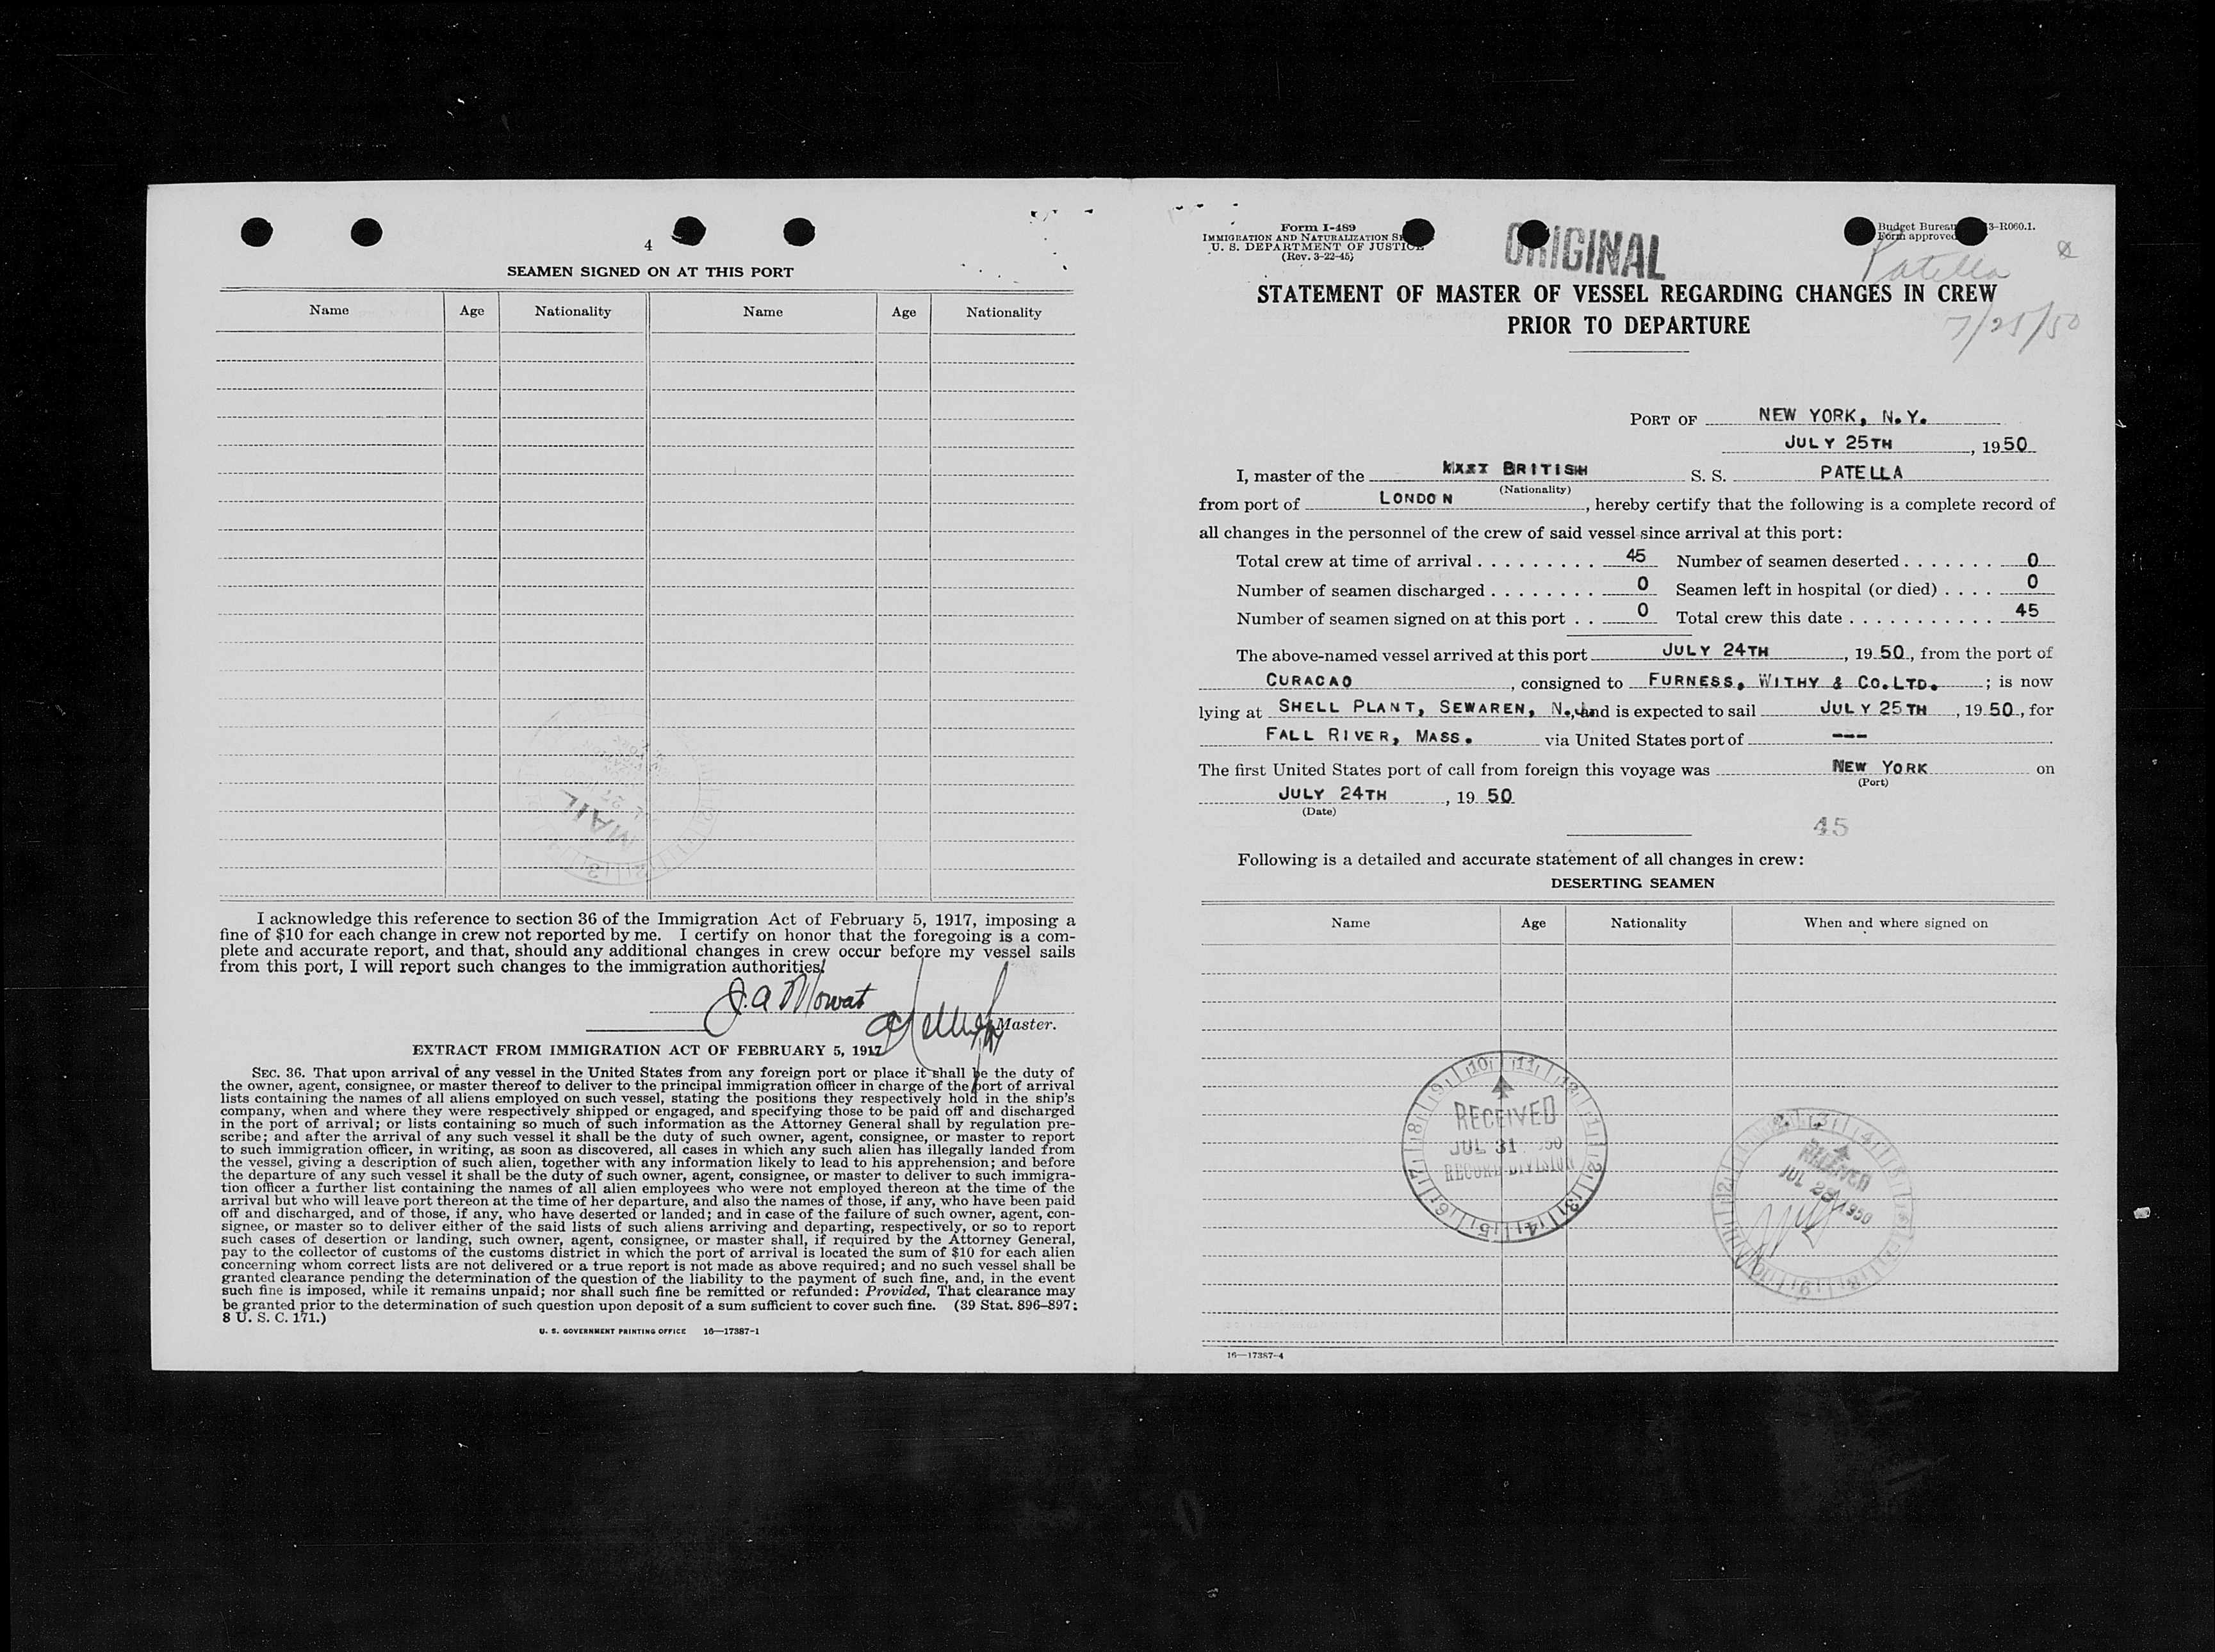 4
SEAMEN SIGNED ON AT THIS PORT
Name Age Nationality Name Age Nationality
MAIL
I acknowledge this reference to section 36 of the Immigration Act of February 5, 1917, imposing a
fine of $10 for each change in crew not reported by me. I certify on honor that the foregoing is a com-
plete and accurate report, and that, should any additional changes in crew occur before my vessel sails
from this port, I will report such changes to the immigration authorities.
J. A Mowat
Master.
EXTRACT FROM IMMIGRATION ACT OF FEBRUARY 5, 1917
SEC. 36. That upon arrival of any vessel in the United States from any foreign port or place it shall be the duty of
the owner, agent, consignee, or master thereof to deliver to the principal immigration officer in charge of the port of arrival
lists containing the names of all aliens employed on such vessel, stating the positions they respectively hold in the ship's
company, when and where they were respectively shipped or engaged, and specifying those to be paid off and discharged
in the port of arrival; or lists containing so much of such information as the Attorney General shall by regulation pre-
scribe; and after the arrival of any such vessel it shall be the duty of such owner, agent, consignee, or master to report
to such immigration officer, in writing, as soon as discovered, all cases in which any such alien has illegally landed from
the vessel, giving a description of such alien, together with any information likely to lead to his apprehension; and before
the departure of any such vessel it shall be the duty of such owner, agent, consignee, or master to deliver to such immigra-
tion officer a further list containing the names of all alien employees who were not employed thereon at the time of the
arrival but who will leave port thereon at the time of her departure, and also the names of those, if any, who have been paid
off and discharged, and of those, if any, who have deserted or landed; and in case of the failure of such owner, agent, con-
signee, or master so to deliver either of the said lists of such aliens arriving and departing, respectively, or so to report
such cases of desertion or landing, such owner, agent, consignee, or master shall, if required by the Attorney General,
pay to the collector of customs of the customs district in which the port of arrival is located the sum of $10 for each alien
concerning whom correct lists are not delivered or a true report is not made as above required; and no such vessel shall be
granted clearance pending the determination of the question of the liability to the payment of such fine, and, in the event
such fine is imposed, while it remains unpaid; nor shall such fine be remitted or refunded: Provided, That clearance may
be granted prior to the determination of such question upon deposit of a sum sufficient to cover such fine. (39 Stat. 896–897;
8 U. S. C. 171.)
U. S. GOVERNMENT PRINTING OFFICE 16—17387-1
Form I-489
IMMIGRATION AND NATURALIZATION
U. S. DEPARTMENT OF JUSTICE
(Rev. 3-22-45)
ORIGINAL
Budget Bureau 3-R060.1.
Form approved
Patella
STATEMENT OF MASTER OF VESSEL REGARDING CHANGES IN CREW
PRIOR TO DEPARTURE
7/25/50
PORT OF NEW YORK, N.Y.
JULY 25TH, 1950
I, master of the BRITISH S. S. PATELLA
(Nationality)
from port of LONDON, hereby certify that the following is a complete record of
all changes in the personnel of the crew of said vessel since arrival at this port:
Total crew at time of arrival . . . . . . . . . 45 Number of seamen deserted . . . . . . . 0
Number of seamen discharged . . . . . . . . 0 Seamen left in hospital (or died) . . . . 0
Number of seamen signed on at this port . . 0 Total crew this date . . . . . . . . . . . 45
The above-named vessel arrived at this port JULY 24TH, 19 50, from the port of
CURACAO, consigned to FURNESS, WITHY & CO.LTD. ; is now
lying at SHELL PLANT, SEWAREN, N.J., and is expected to sail JULY 25TH, 19 50, for
FALL RIVER, MASS. via United States port of ---
The first United States port of call from foreign this voyage was NEW YORK on
(Port)
JULY 24TH, 19 50
(Date)
45
Following is a detailed and accurate statement of all changes in crew:
DESERTING SEAMEN
Name Age Nationality When and where signed on
RECEIVED
JUL 31
RECORD DIVISION
RECEIVED
JUL 28 1950
16—17387-4